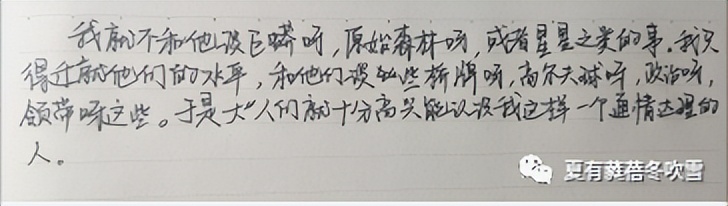 我就不和他谈巨蟒呀，原始森林呀，或者星星之类的事。我只
得迁就他们的水平，和他们谈些桥牌呀，高尔夫球呀，政治呀，
领带呀这些。于是大人们就十分高兴能认识我这样一个通情达理的
人。
夏有葵蓓冬吹雪